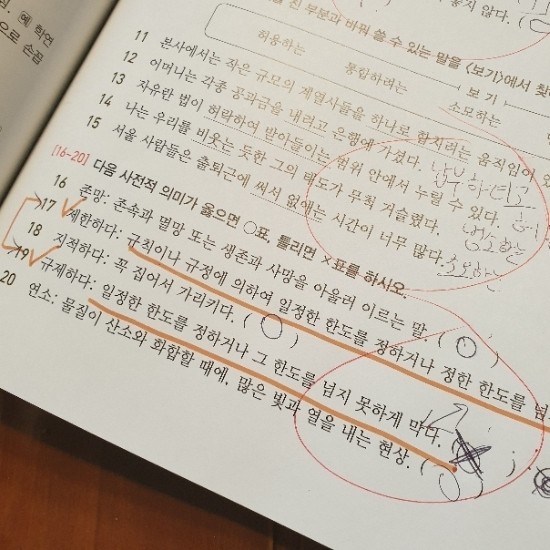 것, 예 학연
으로 손꼽
지 않다. (
진 부분과 바꿔 쓸 수 있는 말을 <보기>에서 찾
보기
허용하는 통합하려는 소모하는
11 본사에서는 작은 규모의 계열사들을 하나로 합치려는 움직임이 있
12 어머니는 각종 공과금을 내려고 은행에 가셨다.
13 자유란 법이 허락하여 받아들이는 범위 안에서 누릴 수 있다.
14 나는 우리를 비웃는 듯한 그의 태도가 무척 거슬렸다.
15 서울 사람들은 출퇴근에 써서 없애는 시간이 너무 많다.
납부하려고
소모하는
[16~20] 다음 사전적 의미가 옳으면 ○표, 틀리면 ×표를 하시오.
16 존망: 존속과 멸망 또는 생존과 사망을 아울러 이르는 말. (○)
17 제한하다: 규칙이나 규정에 의하여 일정한 한도를 정하거나 정한 한도를 넘
18 지적하다: 꼭 집어서 가리키다. (○)
19 규제하다: 일정한 한도를 정하거나 그 한도를 넘지 못하게 막다. ( )
20 연소: 물질이 산소와 화합할 때에, 많은 빛과 열을 내는 현상. (○)